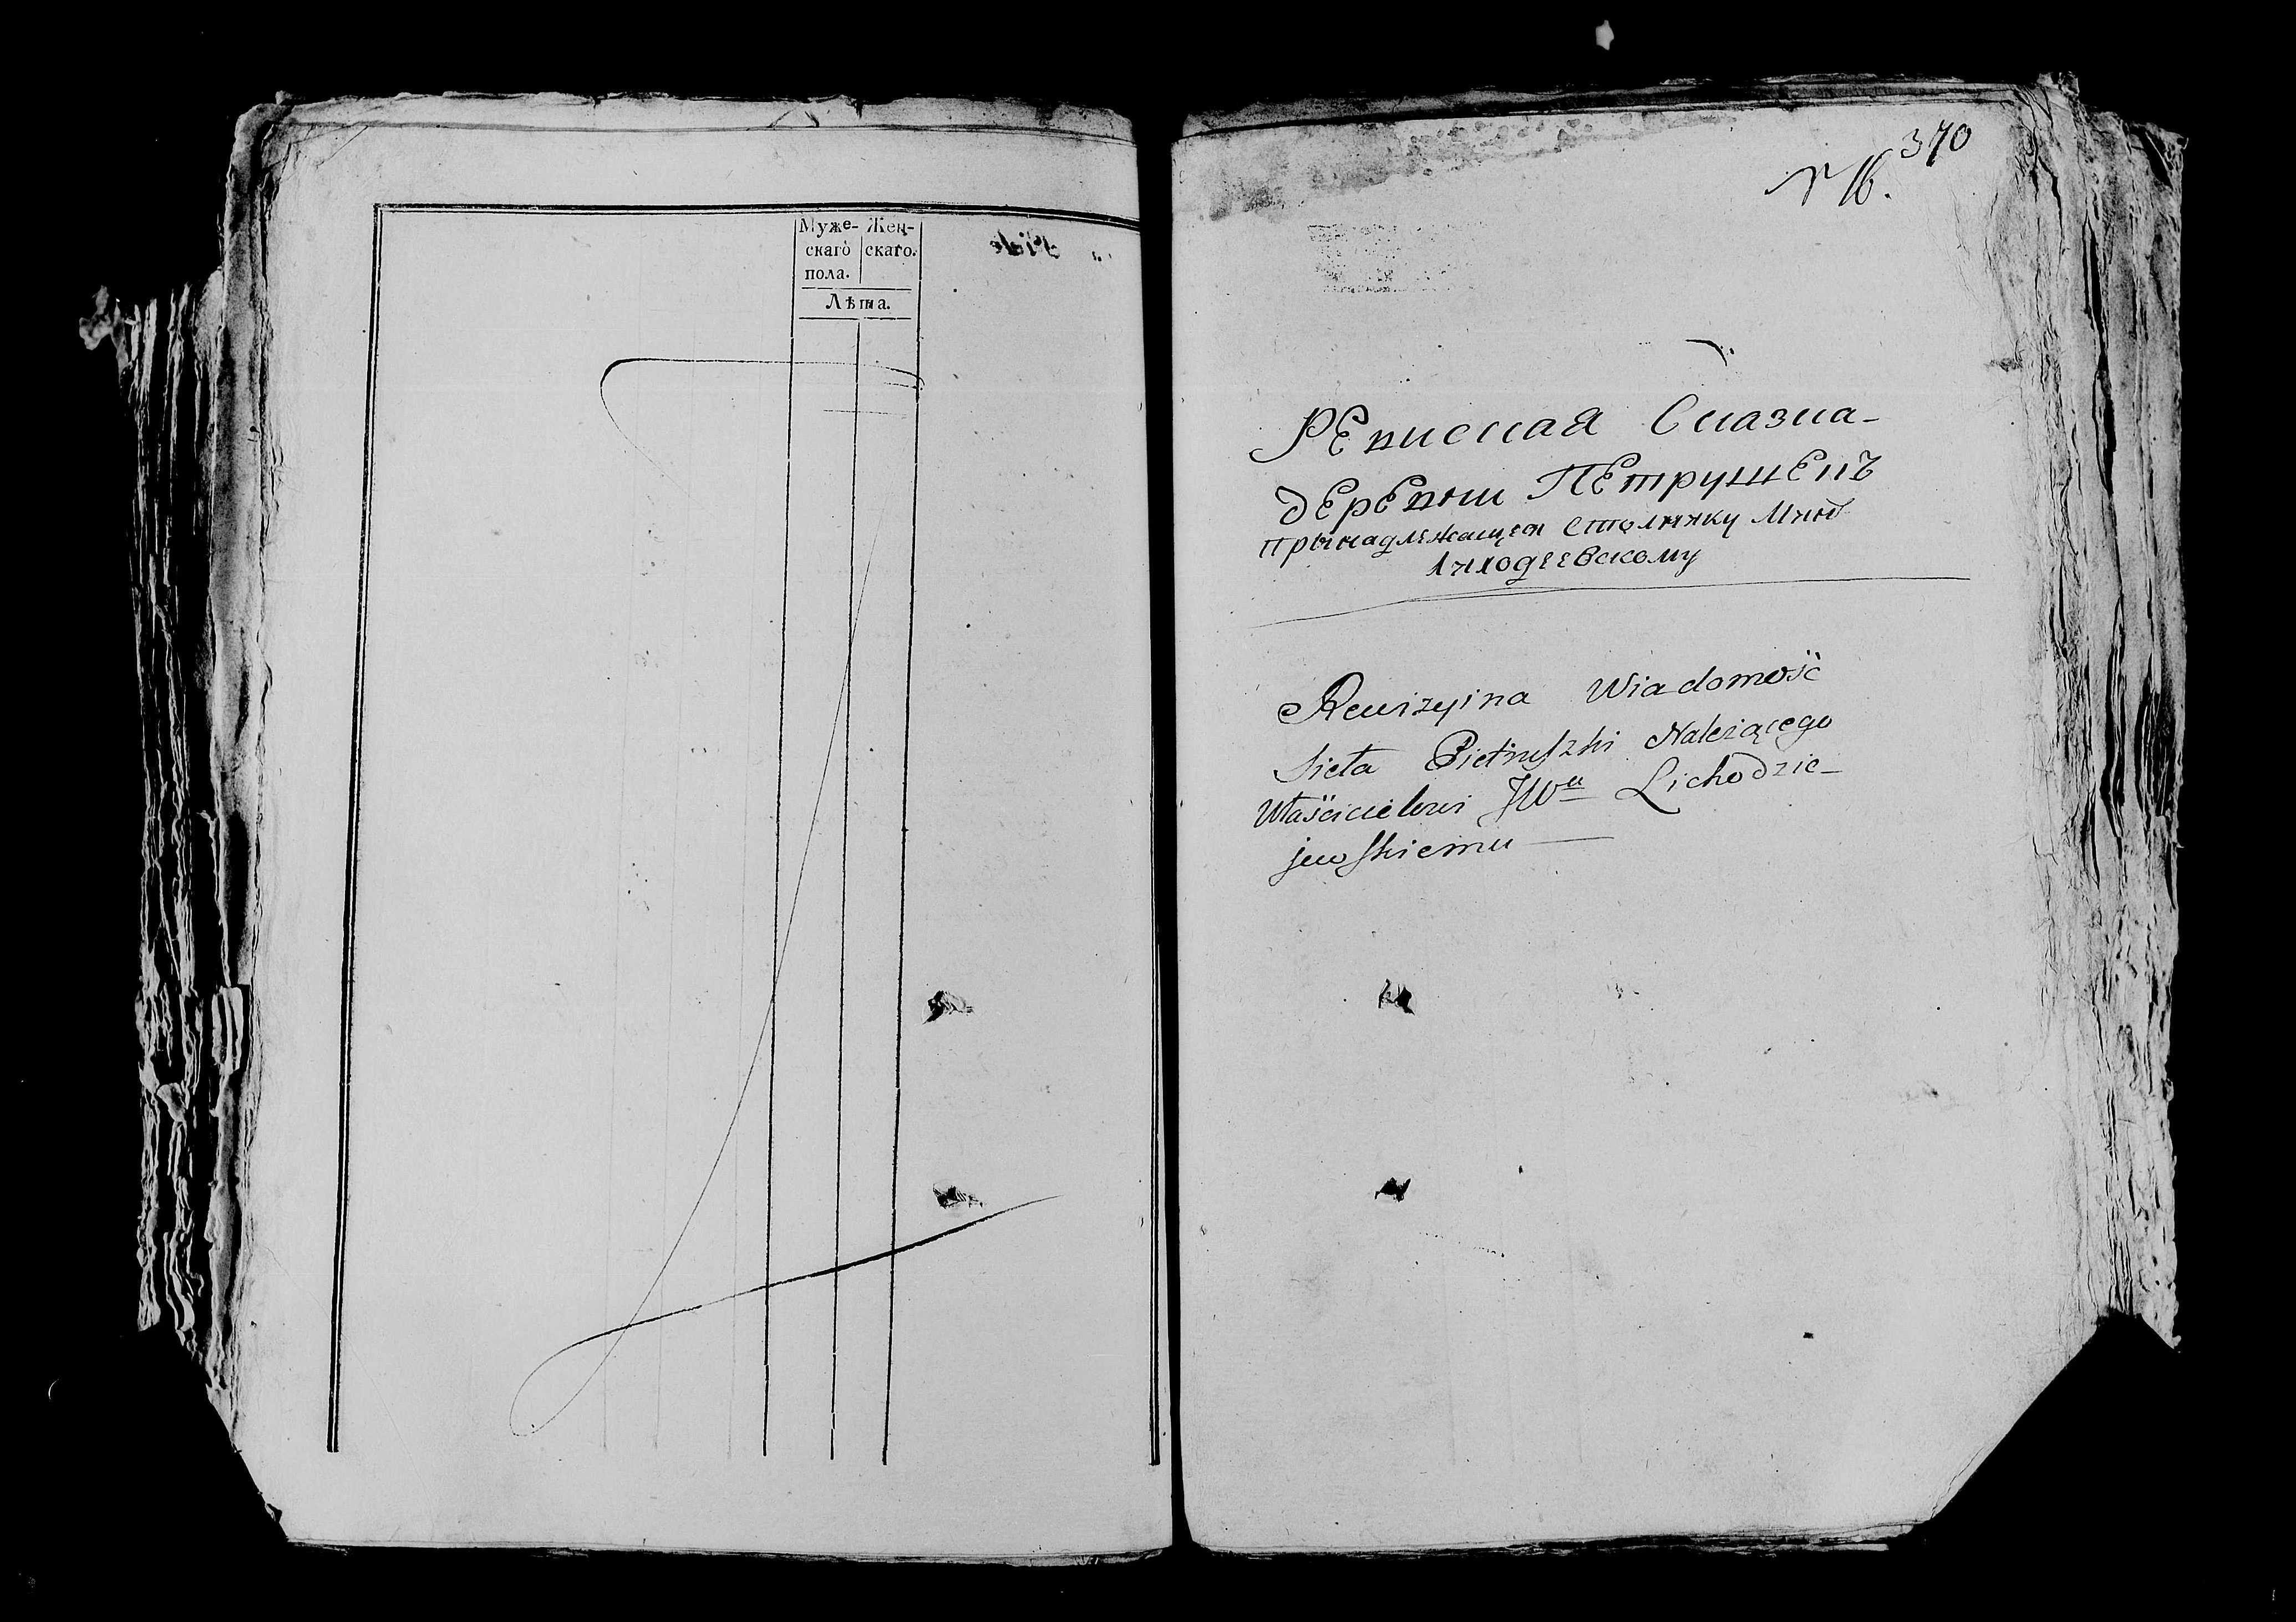 Муже- Жен-
скаго скаго.
пола.
Лѣта.
370
№ 16.
РЕвиская Сказка
дЕрЕвни ПЕтрушЕкъ
прынадлежащеи Столнику
Лиходеевскому
Rewizyina Wiadomość
Sieła Pietruszki Należącego
Właścicielowi JWu Lichodzie-
jewskiemu